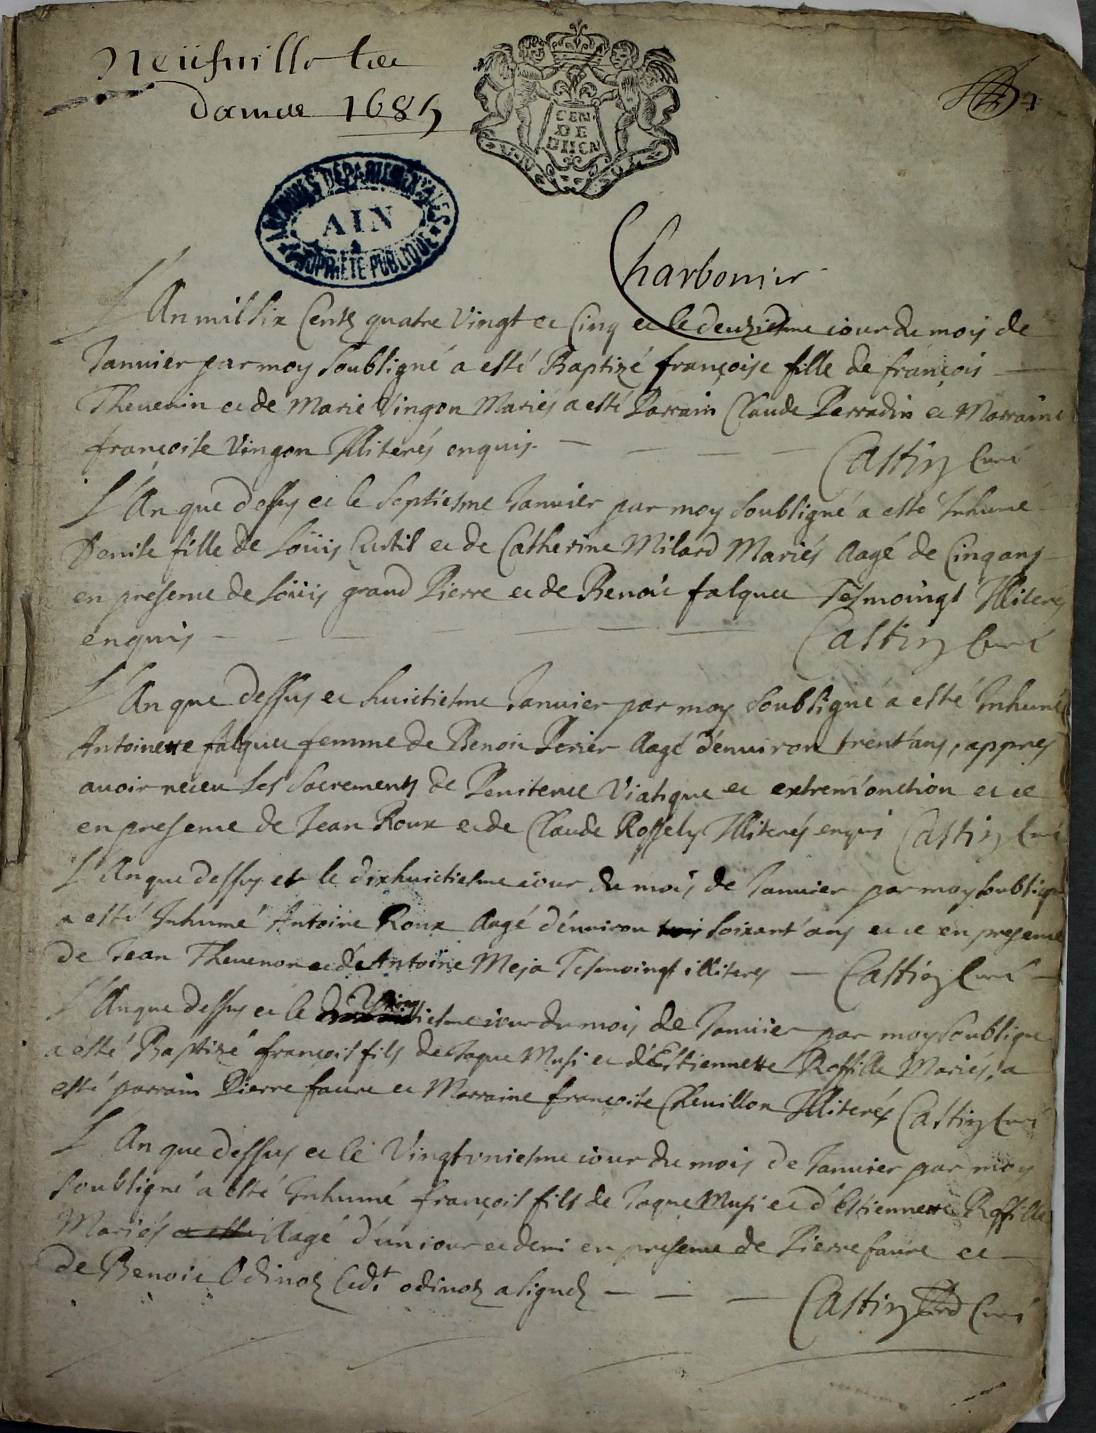 Neufuille les
dames 1685
GEN
DE
ARCHIVES DEPARTEMENTALES
AIN
PROPRIÉTÉ PUBLIQUE
Charbonier
L'An mil six Cents quatre Vingt et Cinq et le deuxiesme iour du mois de
Januier par moy Soubsigné a esté Baptizé françoise fille de françois
Theuenin et de Marie Vingon Mariés a esté Parrain Claude Perradin et Marraine
françoise Vingon Illiterés enquis. Castin Curé
L'An que dessus et le Septiesme Januier par moy Soubsigné a esté Inhumé
Denise fille de Loüis Curtil et de Catherine Milard Mariés Aagé de Cinq ans
en presence de Loüis grand Pierre et de Benoit falquet Tesmoingt Illiterés
enquis Castin Curé
L'An que dessus et huictiesme Januier par moy Soubsigné a esté Inhumé
Antoinette falquet femme de Benoit Perier Aagé d'enuiron trent'ans, appres
auoir receu Les Sacrements de Penitence Viatique et extrem'onction et ce
en presence de Jean Roux et de Claude Rossely Illiterés enquis Castin Curé
L'An que dessus et le dixhuictiesme iour du mois de Januier par moy Soubsigné
a esté Inhumé Antoine Roux Aagé d'enuiron soixant'ans et ce en presence
de Jean Theuenon et de Antoine Meja Tesmoingt illiteres Castin Curé
L'An que dessus et le iour du mois de Januier par moy Soubsigné
a esté Baptizé françois fils de Jaque Musi et d'Estiennette Roffille Mariés, a
esté parrain Pierre faure et Marraine françoise Cheuillon Illiterés Castin Curé
L'An que dessus et le Vingtvniesme iour du mois de Januier par moy
Soubsigné a esté Inhumé françois fils de Jaque Musi et d'Estiennette Roffille
Mariés a esté Aagé d'un iour et demi en presence de Pierre faure et
de Benoit Odinot Ledt odinot a signé Castin Curé